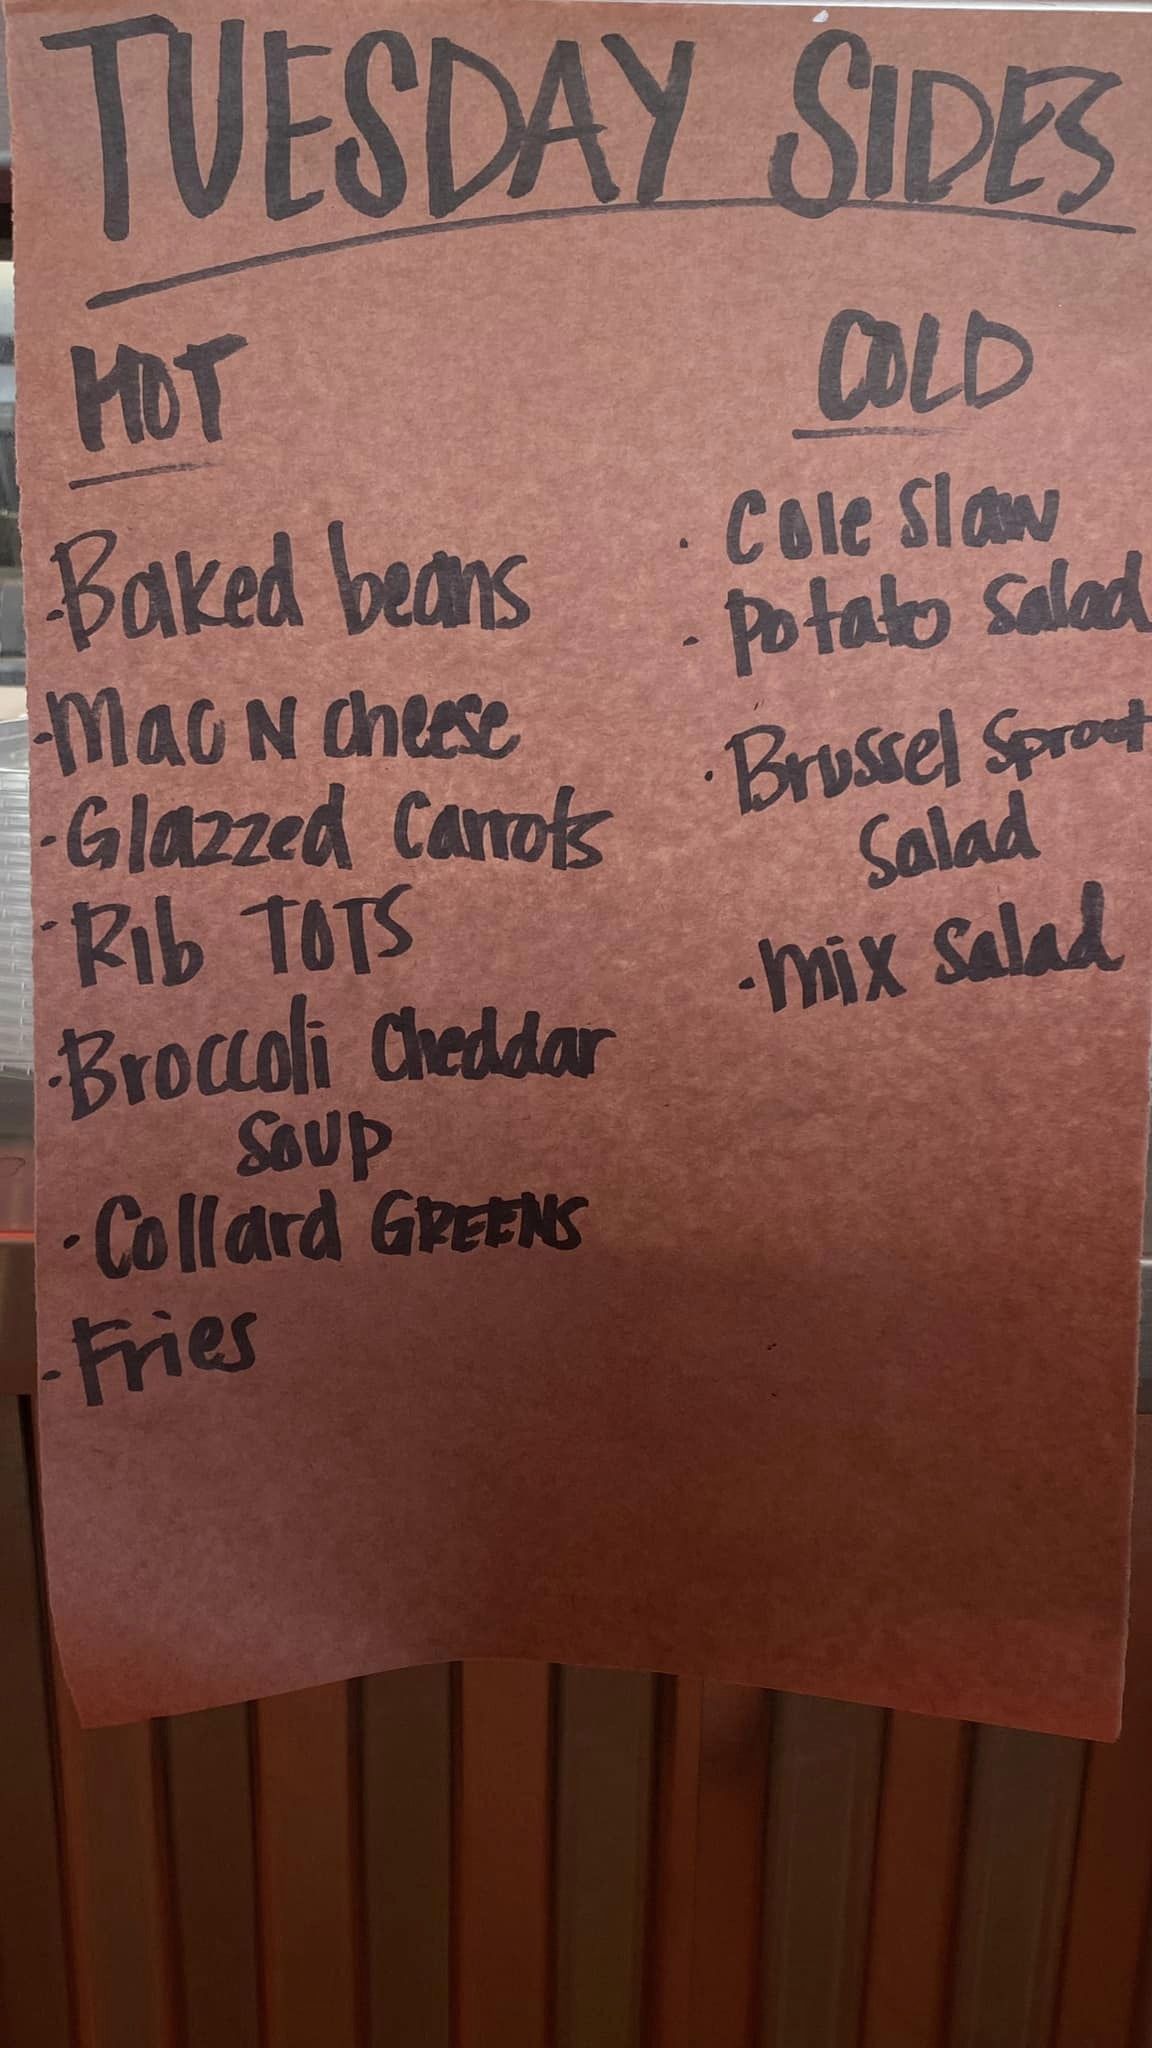 TUESDAY SIDES
HOT
· Baked beans
· Mac N cheese
· Glazzed Carrots
· Rib TOTS
· Broccoli Cheddar
Soup
· Collard GREENS
· Fries
COLD
· Cole Slaw
· Potato Salad
· Brussel Sprout
Salad
· Mix Salad